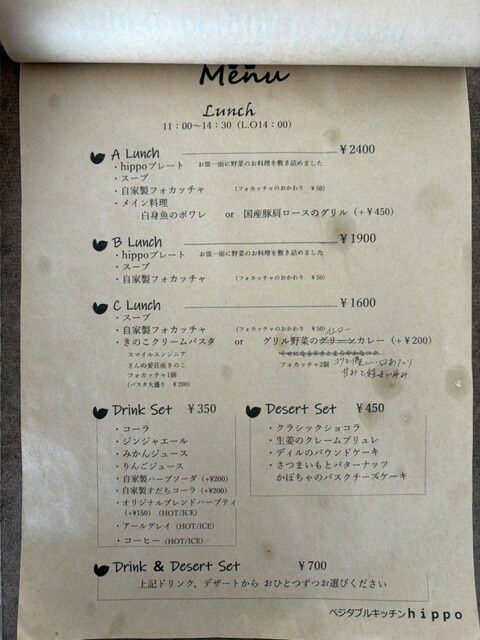 Menu
Lunch
11：00～14：30（L.O14：00）
A Lunch ￥2400
・hippoプレート お皿一面に野菜のお料理を敷き詰めました
・スープ
・自家製フォカッチャ （フォカッチャのおかわり ￥50）
・メイン料理
白身魚のポワレ or 国産豚肩ロースのグリル（+￥450）
B Lunch ￥1900
・hippoプレート お皿一面に野菜のお料理を敷き詰めました
・スープ
・自家製フォカッチャ （フォカッチャのおかわり ￥50）
C Lunch ￥1600
・スープ
・自家製フォカッチャ （フォカッチャのおかわり ￥50）
・きのこクリームパスタ or グリル野菜のグリーンカレー（+￥200）
スマイルエンジニア
さんぬ愛荘産きのこ
フォカッチャ1個 フォカッチャ2個
（パスタ大盛り ￥200） 甘みと程よい辛み
Drink Set ￥350
・コーラ
・ジンジャエール
・みかんジュース
・りんごジュース
・自家製ハーブソーダ（+￥200）
・自家製すだちコーラ（+￥200）
・オリジナルブレンドハーブティ
（+￥150）（HOT/ICE）
・アールグレイ（HOT/ICE）
・コーヒー（HOT/ICE）
Desert Set ￥450
・クラシックショコラ
・生姜のクレームブリュレ
・ディルのパウンドケーキ
・さつまいもとバターナッツ
かぼちゃのバスクチーズケーキ
Drink & Desert Set ￥700
上記ドリンク、デザートから おひとつずつお選びください
ベジタブルキッチンhippo